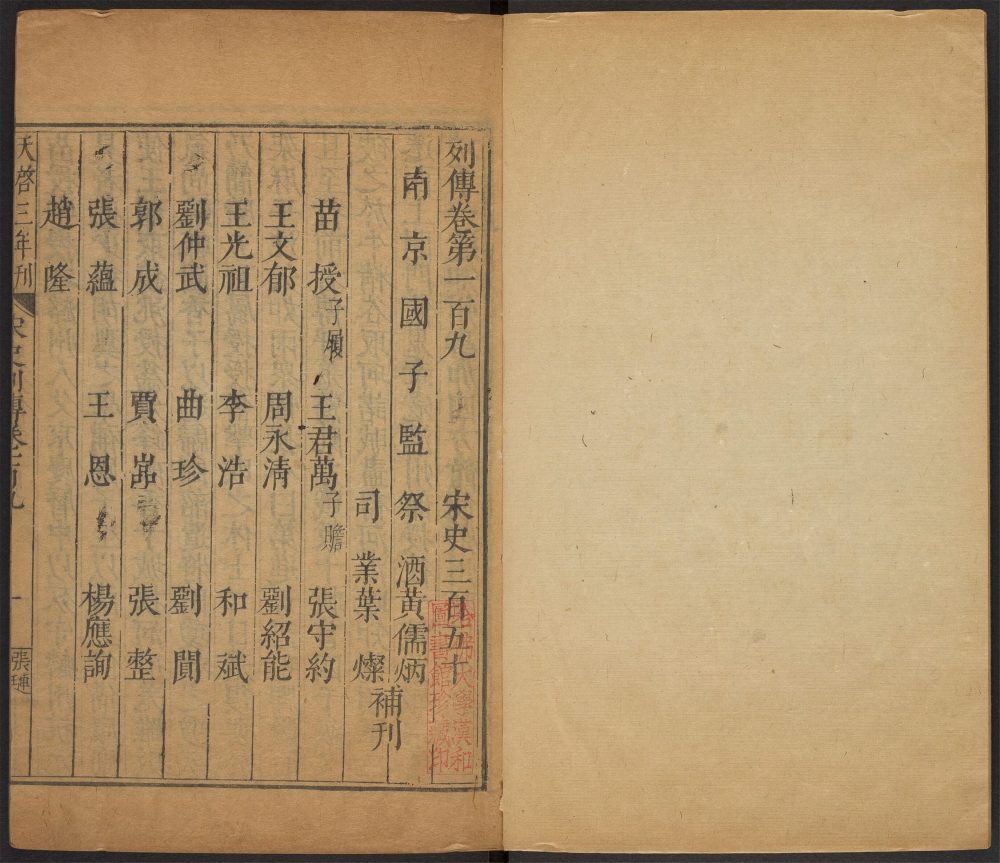 列傳卷第一百九 宋史三百五十
南京國子監祭酒黃儒炳
司業葉燦
補刊
苗授 子履 王君萬 子贍 張守約
王文郁 周永清 劉紹能
王光祖 李浩 和斌
劉仲武 曲珍 劉闃
郭成 賈嵓 張整
張蘊 王恩 楊應詢
趙隆
天啓三年刊 宋史列傳卷一百九 一
哈佛大學漢和
圖書館珍藏印